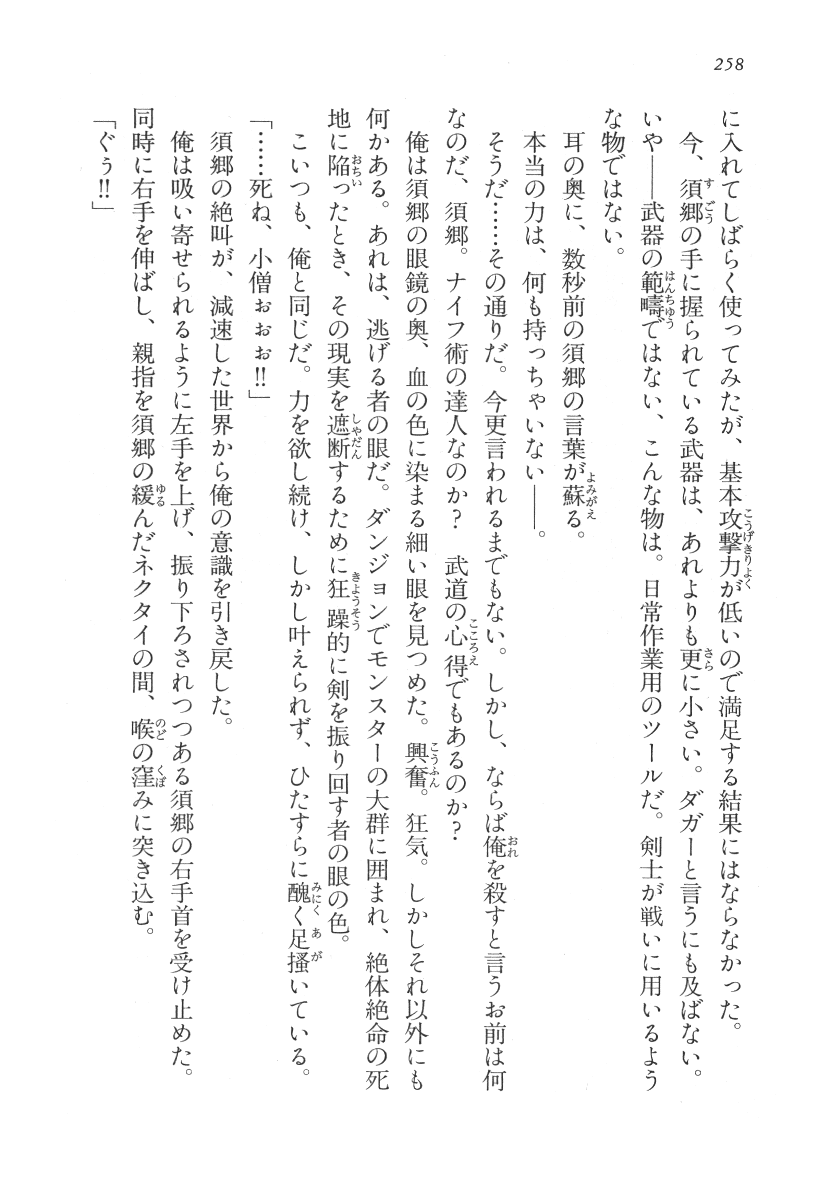 258
に入れてしばらく使ってみたが、基本攻撃力が低いので満足する結果にはならなかった。
今、須郷の手に握られている武器は、あれよりも更に小さい。ダガーと言うにも及ばない。
いや――武器の範疇ではない、こんな物は。日常作業用のツールだ。剣士が戦いに用いるよう
な物ではない。
耳の奥に、数秒前の須郷の言葉が蘇る。
本当の力は、何も持っちゃいない――。
そうだ……その通りだ。今更言われるまでもない。しかし、ならば俺を殺すと言うお前は何
なのだ、須郷。ナイフ術の達人なのか？　武道の心得でもあるのか？
俺は須郷の眼鏡の奥、血の色に染まる細い眼を見つめた。興奮。狂気。しかしそれ以外にも
何かある。あれは、逃げる者の眼だ。ダンジョンでモンスターの大群に囲まれ、絶体絶命の死
地に陥ったとき、その現実を遮断するために狂躁的に剣を振り回す者の眼の色。
こいつも、俺と同じだ。力を欲し続け、しかし叶えられず、ひたすらに醜く足掻いている。
「……死ね、小僧ぉぉぉ!!」
須郷の絶叫が、減速した世界から俺の意識を引き戻した。
俺は吸い寄せられるように左手を上げ、振り下ろされつつある須郷の右手首を受け止めた。
同時に右手を伸ばし、親指を須郷の緩んだネクタイの間、喉の窪みに突き込む。
「ぐぅ!!」